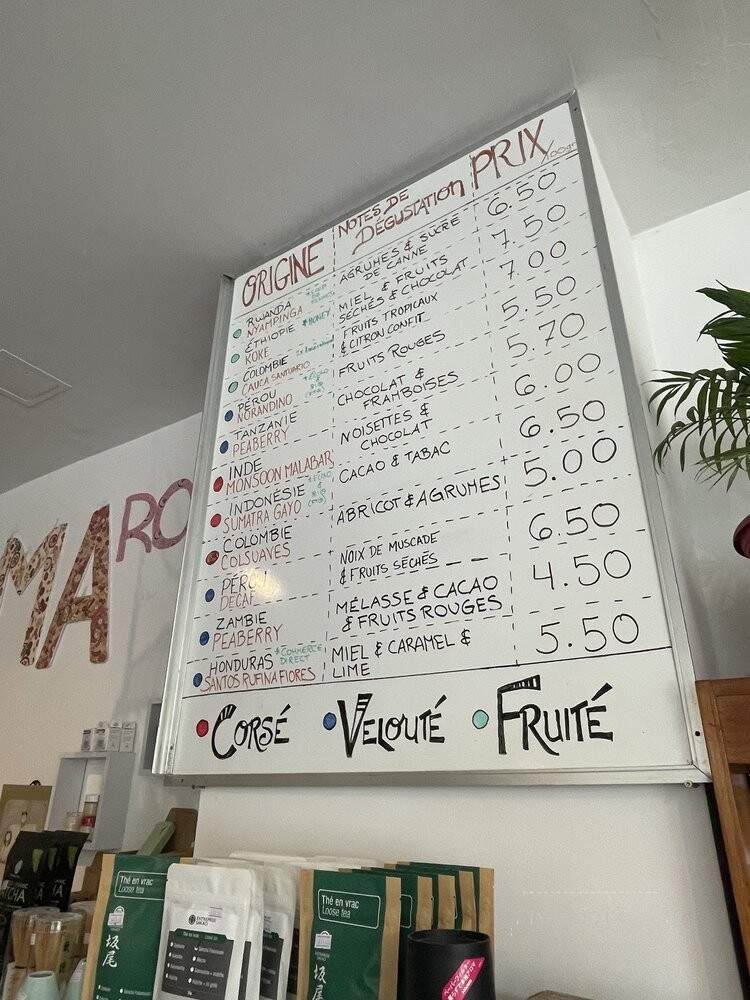 ORIGINE NOTES DE DÉGUSTATION PRIX /100gr
RWANDA NYAMPINGA AGRUMES & SUCRE DE CANNE 6.50
ÉTHIOPIE *HONEY KOKE MIEL & FRUITS SÉCHÉS & CHOCOLAT 7.50
COLOMBIE CAUCA SANTUARIO FRUITS TROPICAUX & CITRON CONFIT 7.00
PÉROU NORANDINO FRUITS ROUGES 5.50
TANZANIE PEABERRY CHOCOLAT & FRAMBOISES 5.70
INDE MONSOON MALABAR NOISETTES & CHOCOLAT 6.00
INDONÉSIE SUMATRA GAYO CACAO & TABAC 6.50
COLOMBIE COLSUAVES ABRICOT & AGRUMES 5.00
PÉROU DECAF NOIX DE MUSCADE & FRUITS SÉCHÉS 6.50
ZAMBIE PEABERRY MÉLASSE & CACAO & FRUITS ROUGES 4.50
HONDURAS *COMMERCE DIRECT SANTOS RUFINA FLORES MIEL & CARAMEL & LIME 5.50
CORSÉ VELOUTÉ FRUITÉ
MA
RO
Thé en vrac
Loose tea
坂尾
Thé en vrac
Loose tea
坂尾